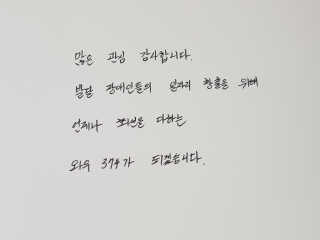 많은 관심 감사합니다.
발달 장애인들의 일자리 창출을 위해
언제나 최선을 다하는
와우 374가 되겠습니다.